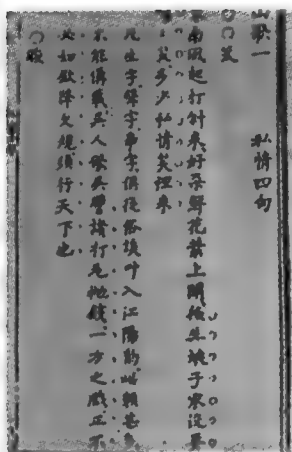 山歌一 私情四句
笑
南風起打斜來好朵鮮花葉上開後生娘子家沒要
笑多少私情笑裡來
凡生字聲字爭字俱從俗談叶入江陽韻此類甚多
不能備載吳人歌吳譬諸打瓦抛錢一方之戲正不
必如欽降文規須行天下也